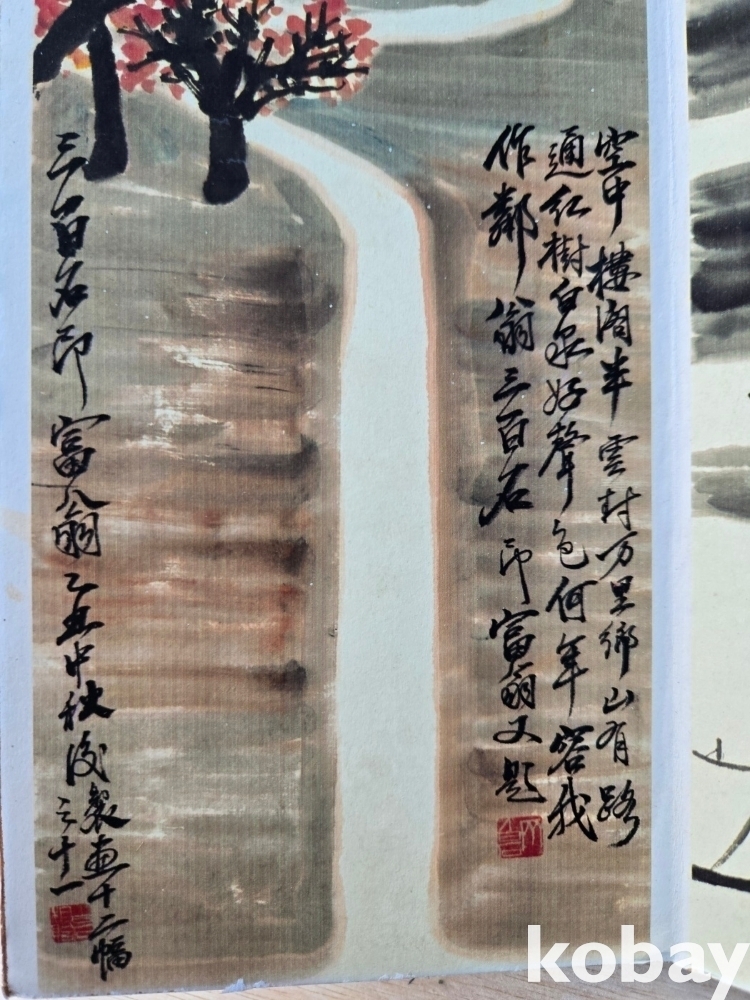 空中樓閣半雲封万里鄉山有路
通紅樹白泉好聲色何年容我
作鄰翁三百石印富翁又題
三百石印富翁乙丑中秋後製画十二幅
之十一
kobay